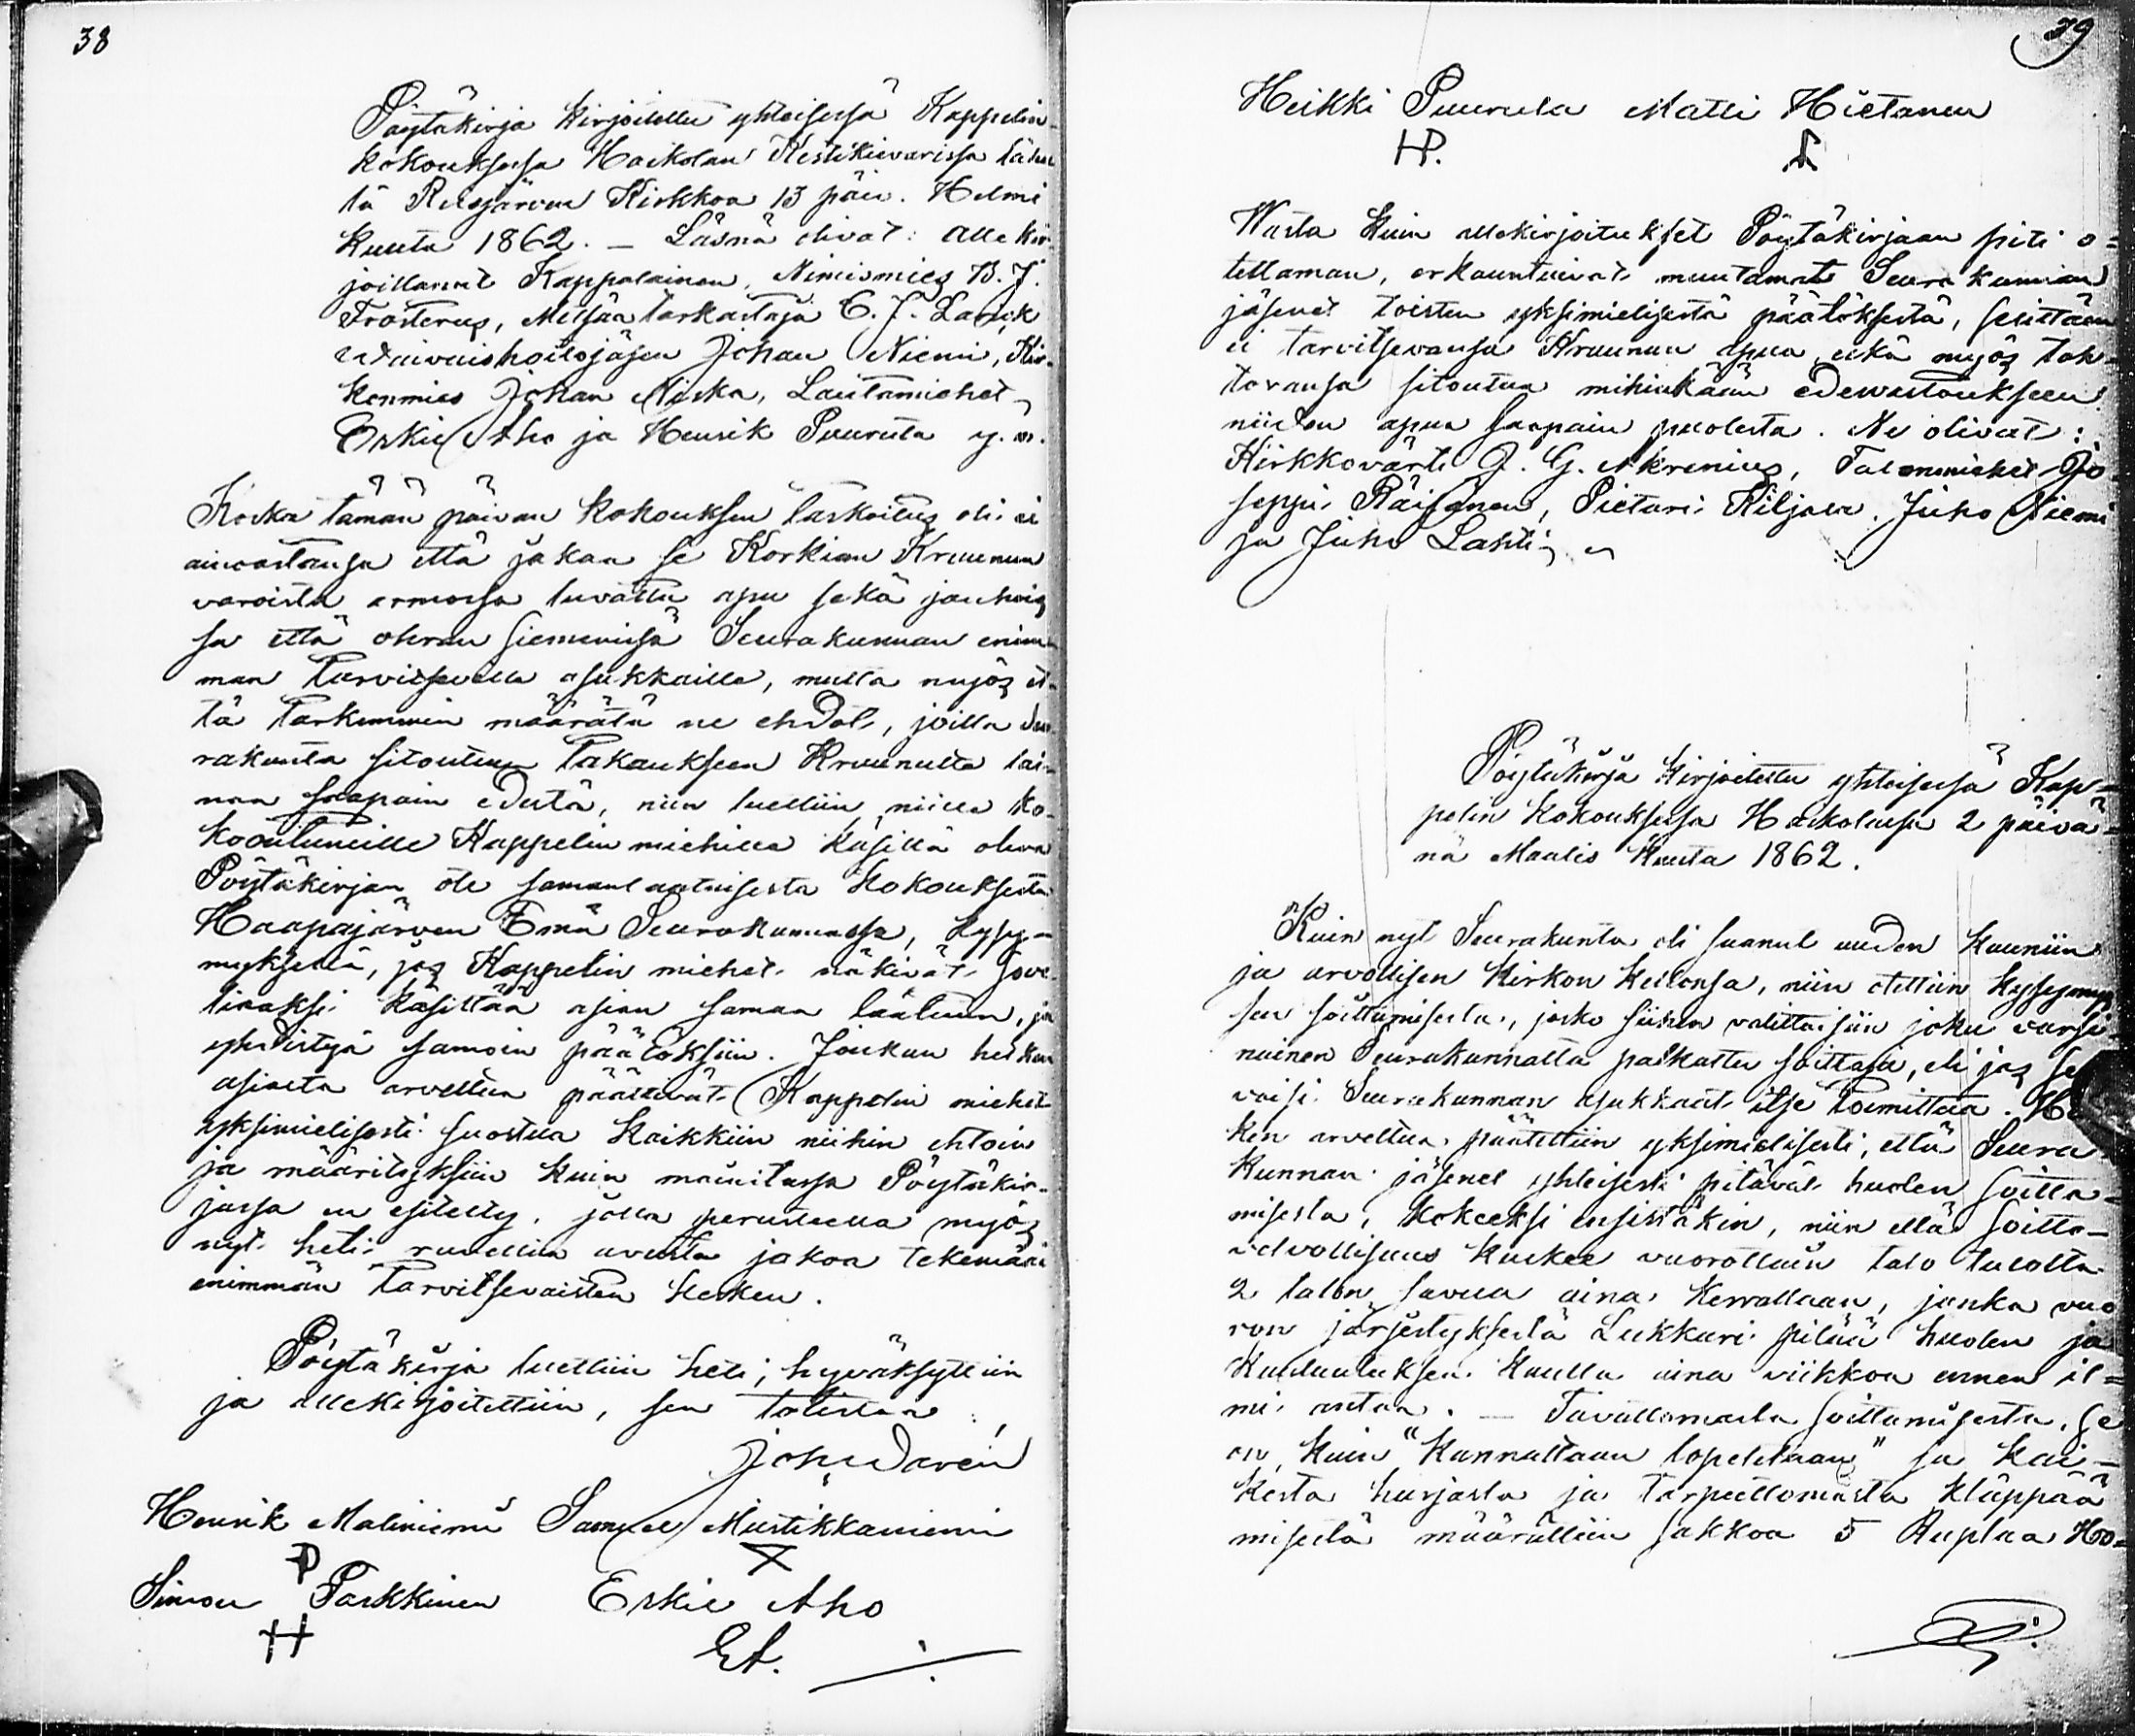 38
Pöytäkirja kirjoitettu yhteisessä Kappelin-
kokouksessa Haikolan Kestikievarissa lähel
tä Reisjärven Kirkkoa 13 päiv. Helmi
kuuta 1862. — Läsnä olivat: alle kir-
joittanut Kappalainen, Nimismies B. J.
Frosterus, Metsän tarkastaja C. J.
vaivaishoitojäsen Johan Niemi, Kir-
konmies Johan Niska, Lautamiehet
Erkki Aho ja Henrik Puurula y. m.
Koska tämän päivän kokouksen tarkoitus oli ei
ainoastansa että jakaa se Korkian Kruunun
varoista armossa luvattu apu sekä jauhois
sa että ohran siemenissä Seurakunnan enim-
män tarvitsevilla asukkaille, mutta myös et-
tä tarkemmin määrätä ne ehdot, joilla Seu-
rakunta sitoutuu takaukseen Kruunulta lai-
nan saapain edestä, niin luettiin niille ko-
koontuneille Kappelin miehille käsillä oleva
Pöytäkirjan ote samanlaatuisesta kokouksesta
Haapajärven Emä Seurakunnassa, kysy-
myksellä, jos Kappelin miehet näkivät sove-
liaaksi käsittää asian saman laatuun, ja
yhdistyä samoin päätöksiin. Joukon hetken
asiasta arveltua päättivät Kappelin miehet
yksimielisesti suostua kaikkiin niihin ehtoin
ja määrityksiin kuin mainitussa Pöytäkir-
jassa on esitetty, jolla perusteella myös
nyt heti ruvettiin avusta jakoa tekemään
enimmän tarvitsevaisten kesken.
Pöytäkirja luettiin heti, hyväksyttiin
ja allekirjoitettiin, sen todistaa:
Joh. Daren
Henrik Maliniemi Samuel Mustikkaniemi
Simon Parkkinen Erkki Aho
EA.
39
Heikki Puurula Matti Hietanen
HP.
Wasta kuin allekirjoitukset Pöytäkirjaan piti o=
tettaman, erkaantuivat muutamat Seurakunnan
jäsenet toisten yksimielisestä päätöksestä, selittäen
ei tarvitsevansa Kruunun apua, eikä myös tah-
tovansa sitoutua mihinkään edesvastaukseen
niiden apua saapain puolesta. Ne olivat:
Kirkkovärti J. G. Akrenius, Talonmiehet Jo
seppi Räisänen, Pietari Kiljala, Juho Niemi
ja Juho Lahti
Pöytäkirja kirjoitettu yhteisessä Kap=
pelin kokouksessa Haikolassa 2 päivä=
nä Maalis kuuta 1862.
Kuin nyt Seurakunta oli saanut uuden kauniin
ja arvollisen Kirkon kellonsa, niin otettiin kysymys
sen soittamisesta, josko siihen valittaisiin joku varsi
nainen Seurakunnalta palkattu soittaja, eli jos se
voisi Seurakunnan asukkaat itse toimittaa. He
ken arveltua päätettiin yksimielisesti, että Seura
kunnan jäsenet yhteisesti pitävät huolen soitta=
misesta, kokeeksi ensistäkin, niin että soitto-
velvollisuus kuskee vuorollaan talo talolta
2 talon savua aina kerrallaan, jonka vuo
ron järjestyksestä Lukkari pitää huolen ja
Kuuluutuksen kautta aina viikkoa ennen il=
mi antaa. — Tavattomasta soittamisesta, se
on, kuin "Kannattaan lopetetaan" ja kai-
kesta hurjasta ja tarpeettomasta kläppää
misestä määrättiin sakkoa 5 Ruplaa Ho=